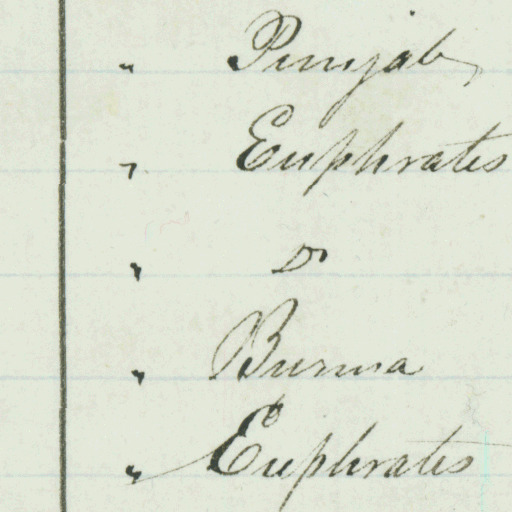 " Punjab
" Euphrates
" Do
" Burma
" Euphrates